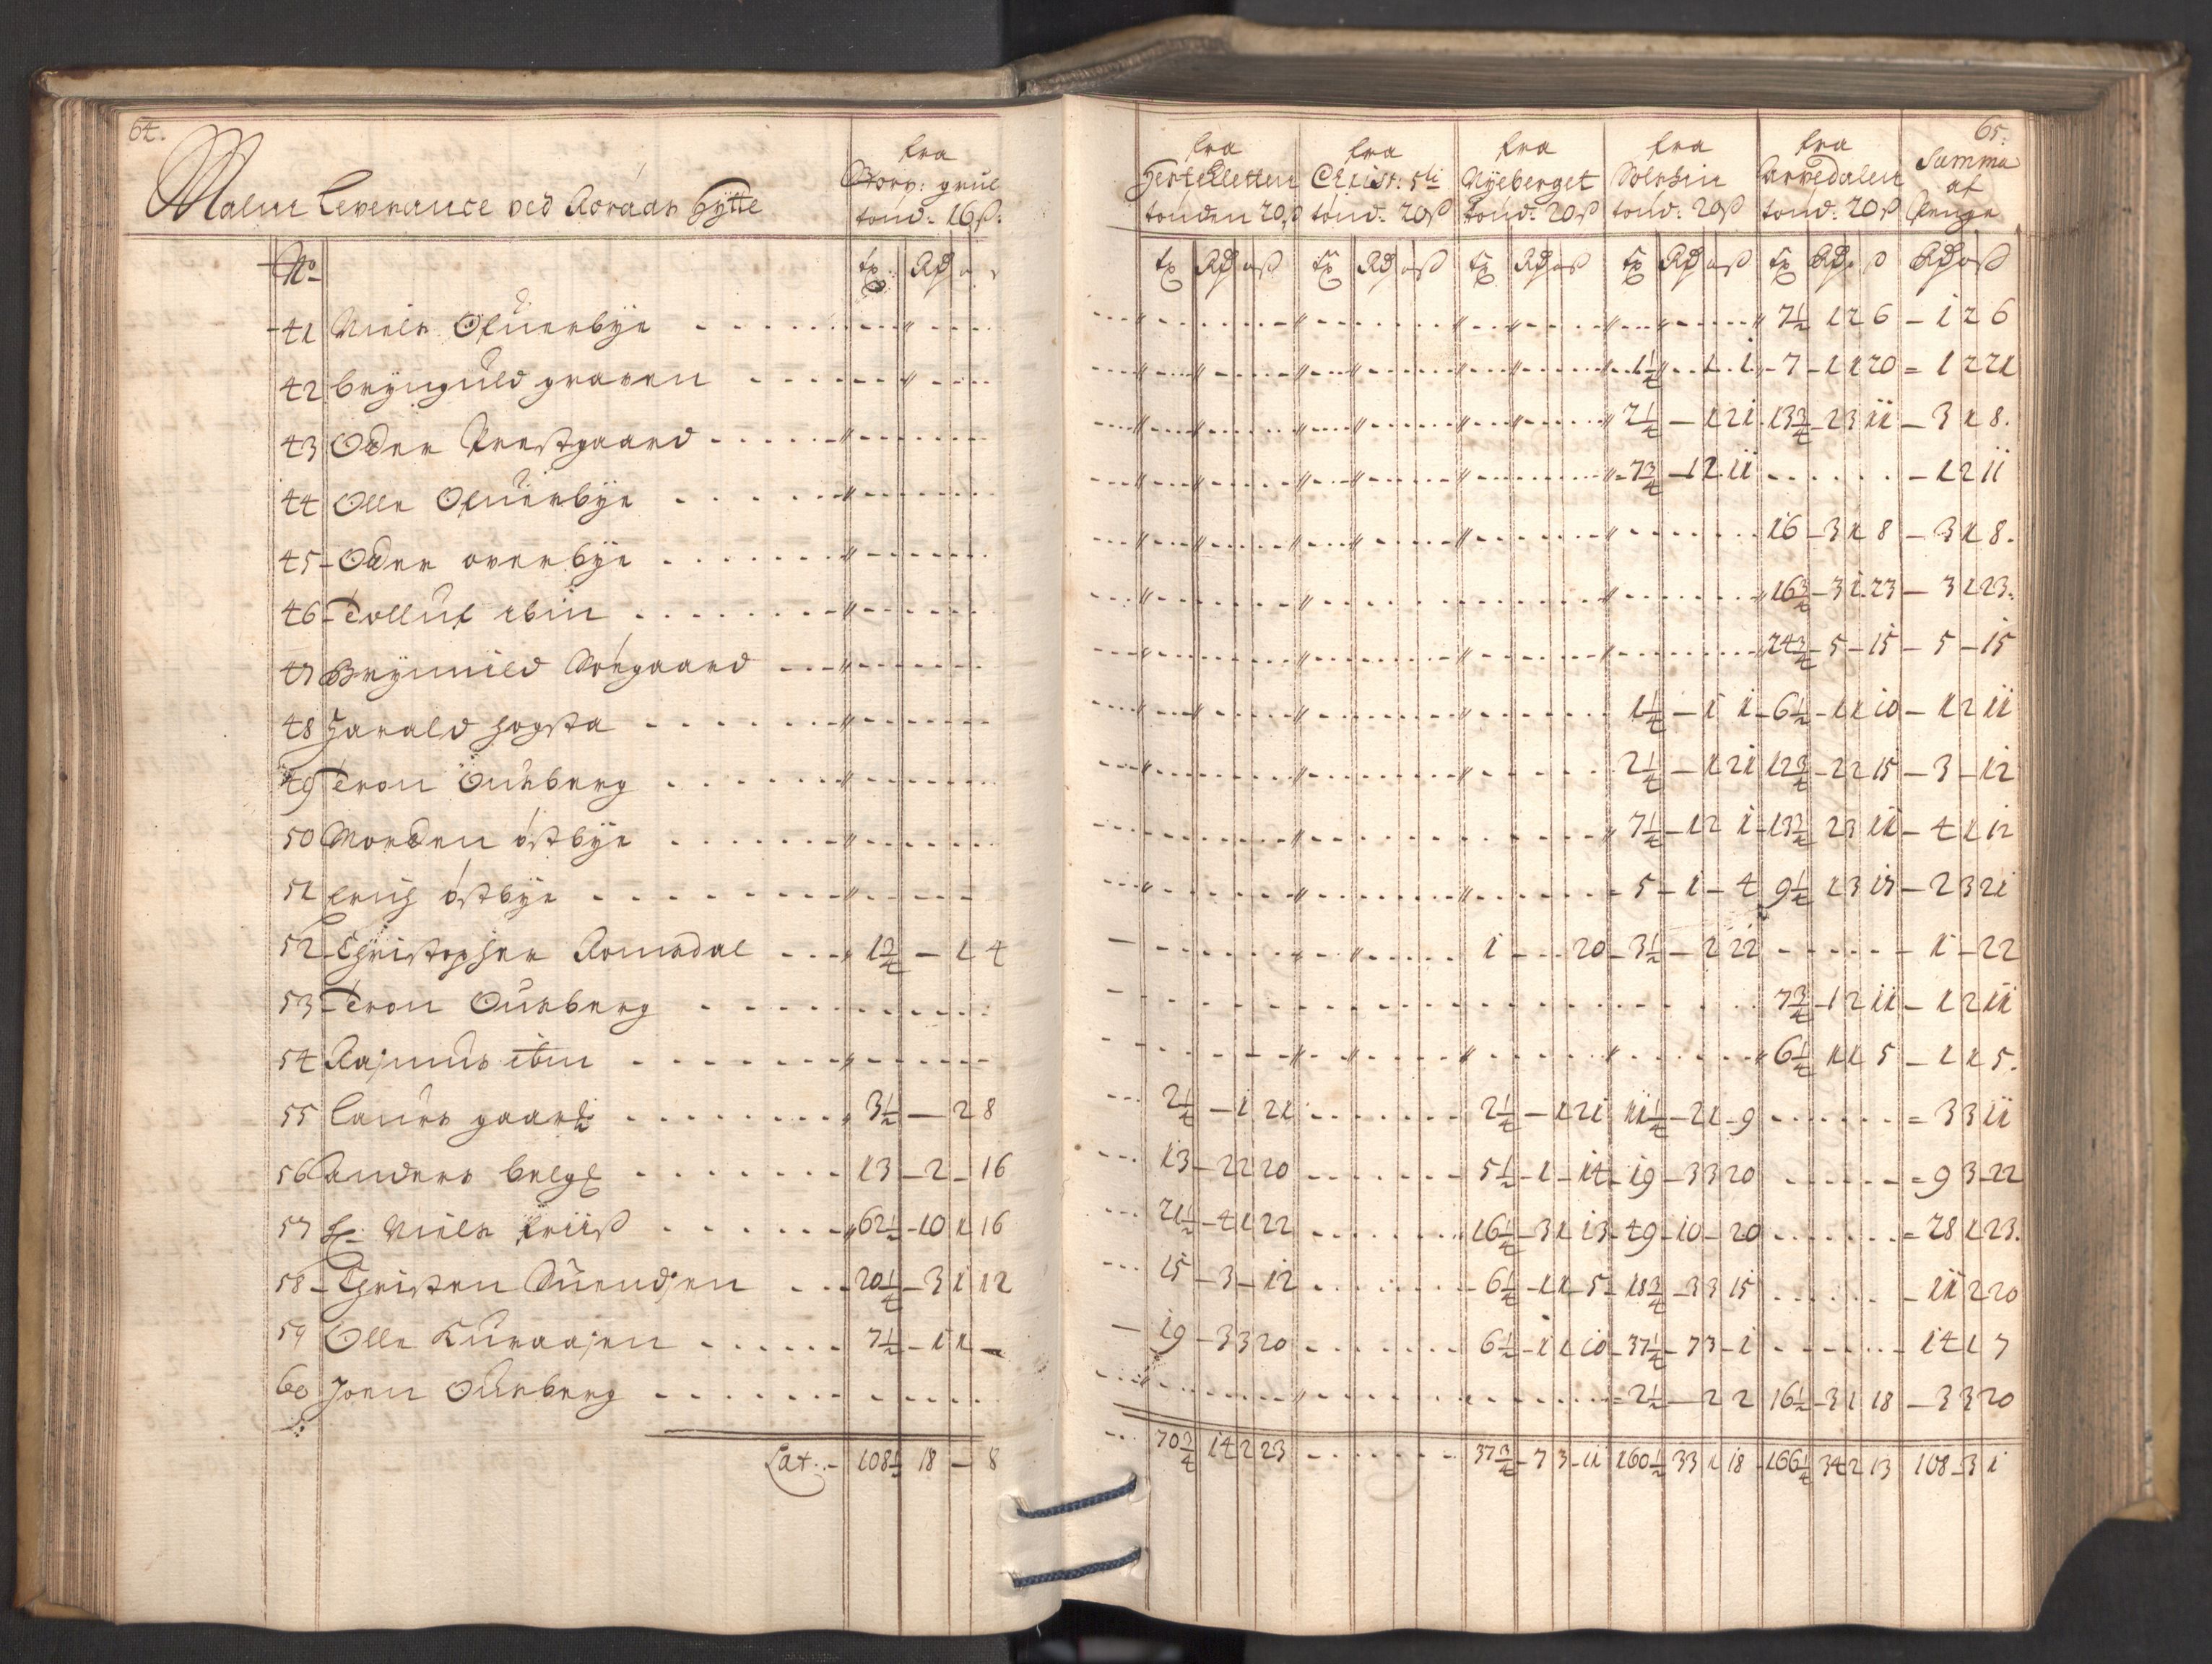 64.
65.
Malm Leverance ved Röraas Hytte
fra Storv: grul tönd: 16 ß:
fra Hestkletten tönden 20 ß
fra Christ: 5ti tönd: 20 ß
fra Nÿeberget tönd: 20 ß
fra Solskin tönd: 20 ß
fra Arvedalen tönd: 20 ß
Summa af Penge
No
41 Niels Ofuerbÿe 7½ 1 2 6 - 1 2 6
42 Brÿnguld graven 1¼ 1 1 - 7 - 1 1 20 = 1 2 21
43 Oder Prestgaard 2¼ - 1 21 13¾ - 2 3 11 - 3 1 8.
44 Olle Ofuerbÿe 7¾ - 1 2 11 - 1 2 11
45 - Oder overbÿe 16 - 3 1 8 - 3 1 8.
46 - Tolluf ibm 16¾ - 3 1 23 - 3 1 23.
47 Brÿnnild Sörgaard 24¾ - 5 - 15 - 5 - 15
48 Harald Hogsta 1¼ - 1 1 - 6½ - 1 1 10 - 1 2 11
49 Tron Ourberg 2¼ - 1 21 12¾ - 2 2 15 - 3 - 12
50 Morden östbÿe 7¼ - 1 2 1 - 13¾ 2 3 11 - 4 1 12
51 Erich östbÿe 5 - 1 - 4 9½ 1 3 17 - 2 3 21
52 - Christopher Romsdal 1¾ - 1 4 1 - - 20 - 3½ - 2 22 - 1 - 22
53 - Tron Ourberg 7¾ - 1 2 11 - 1 2 11
54 Rasmus ibm 6¼ 1 1 5 - 1 1 5.
55 Laurs gaarh 3½ - 2 8 2¼ - 1 21 2¼ - 1 21 11¼ - 2 1 9 = 3 3 11
56 Anders belgh 13 - 2 - 16 13 - 2 2 20 5½ - 1 - 14 - 19 - 3 3 20 = 9 3 22
57 Hr. Niels Friis 62½ - 10 1 16 21½ - 4 1 22 16¼ - 3 1 13 - 49 - 10 - 20 = 28 1 23.
58 - Christen Suendsen 20¼ - 3 1 12 15 - 3 - 12 6¼ - 1 1 5 - 18¾ - 3 3 15 - 11 2 20
59 Olle Kuraasen 7½ - 1 1 - 19 - 3 3 20 6½ - 1 1 10 - 37¼ - 7 3 - 1 - 14 1 7
60 Joen Ourberg 2½ - 2 2 16½ - 3 1 18 - 3 3 20
Lat. - 108½ 18 - 8 70¾ 14 2 23 37¾ - 7 3 - 11 160½ 33 1 18 - 166¼ 34 2 13 108 - 3 1